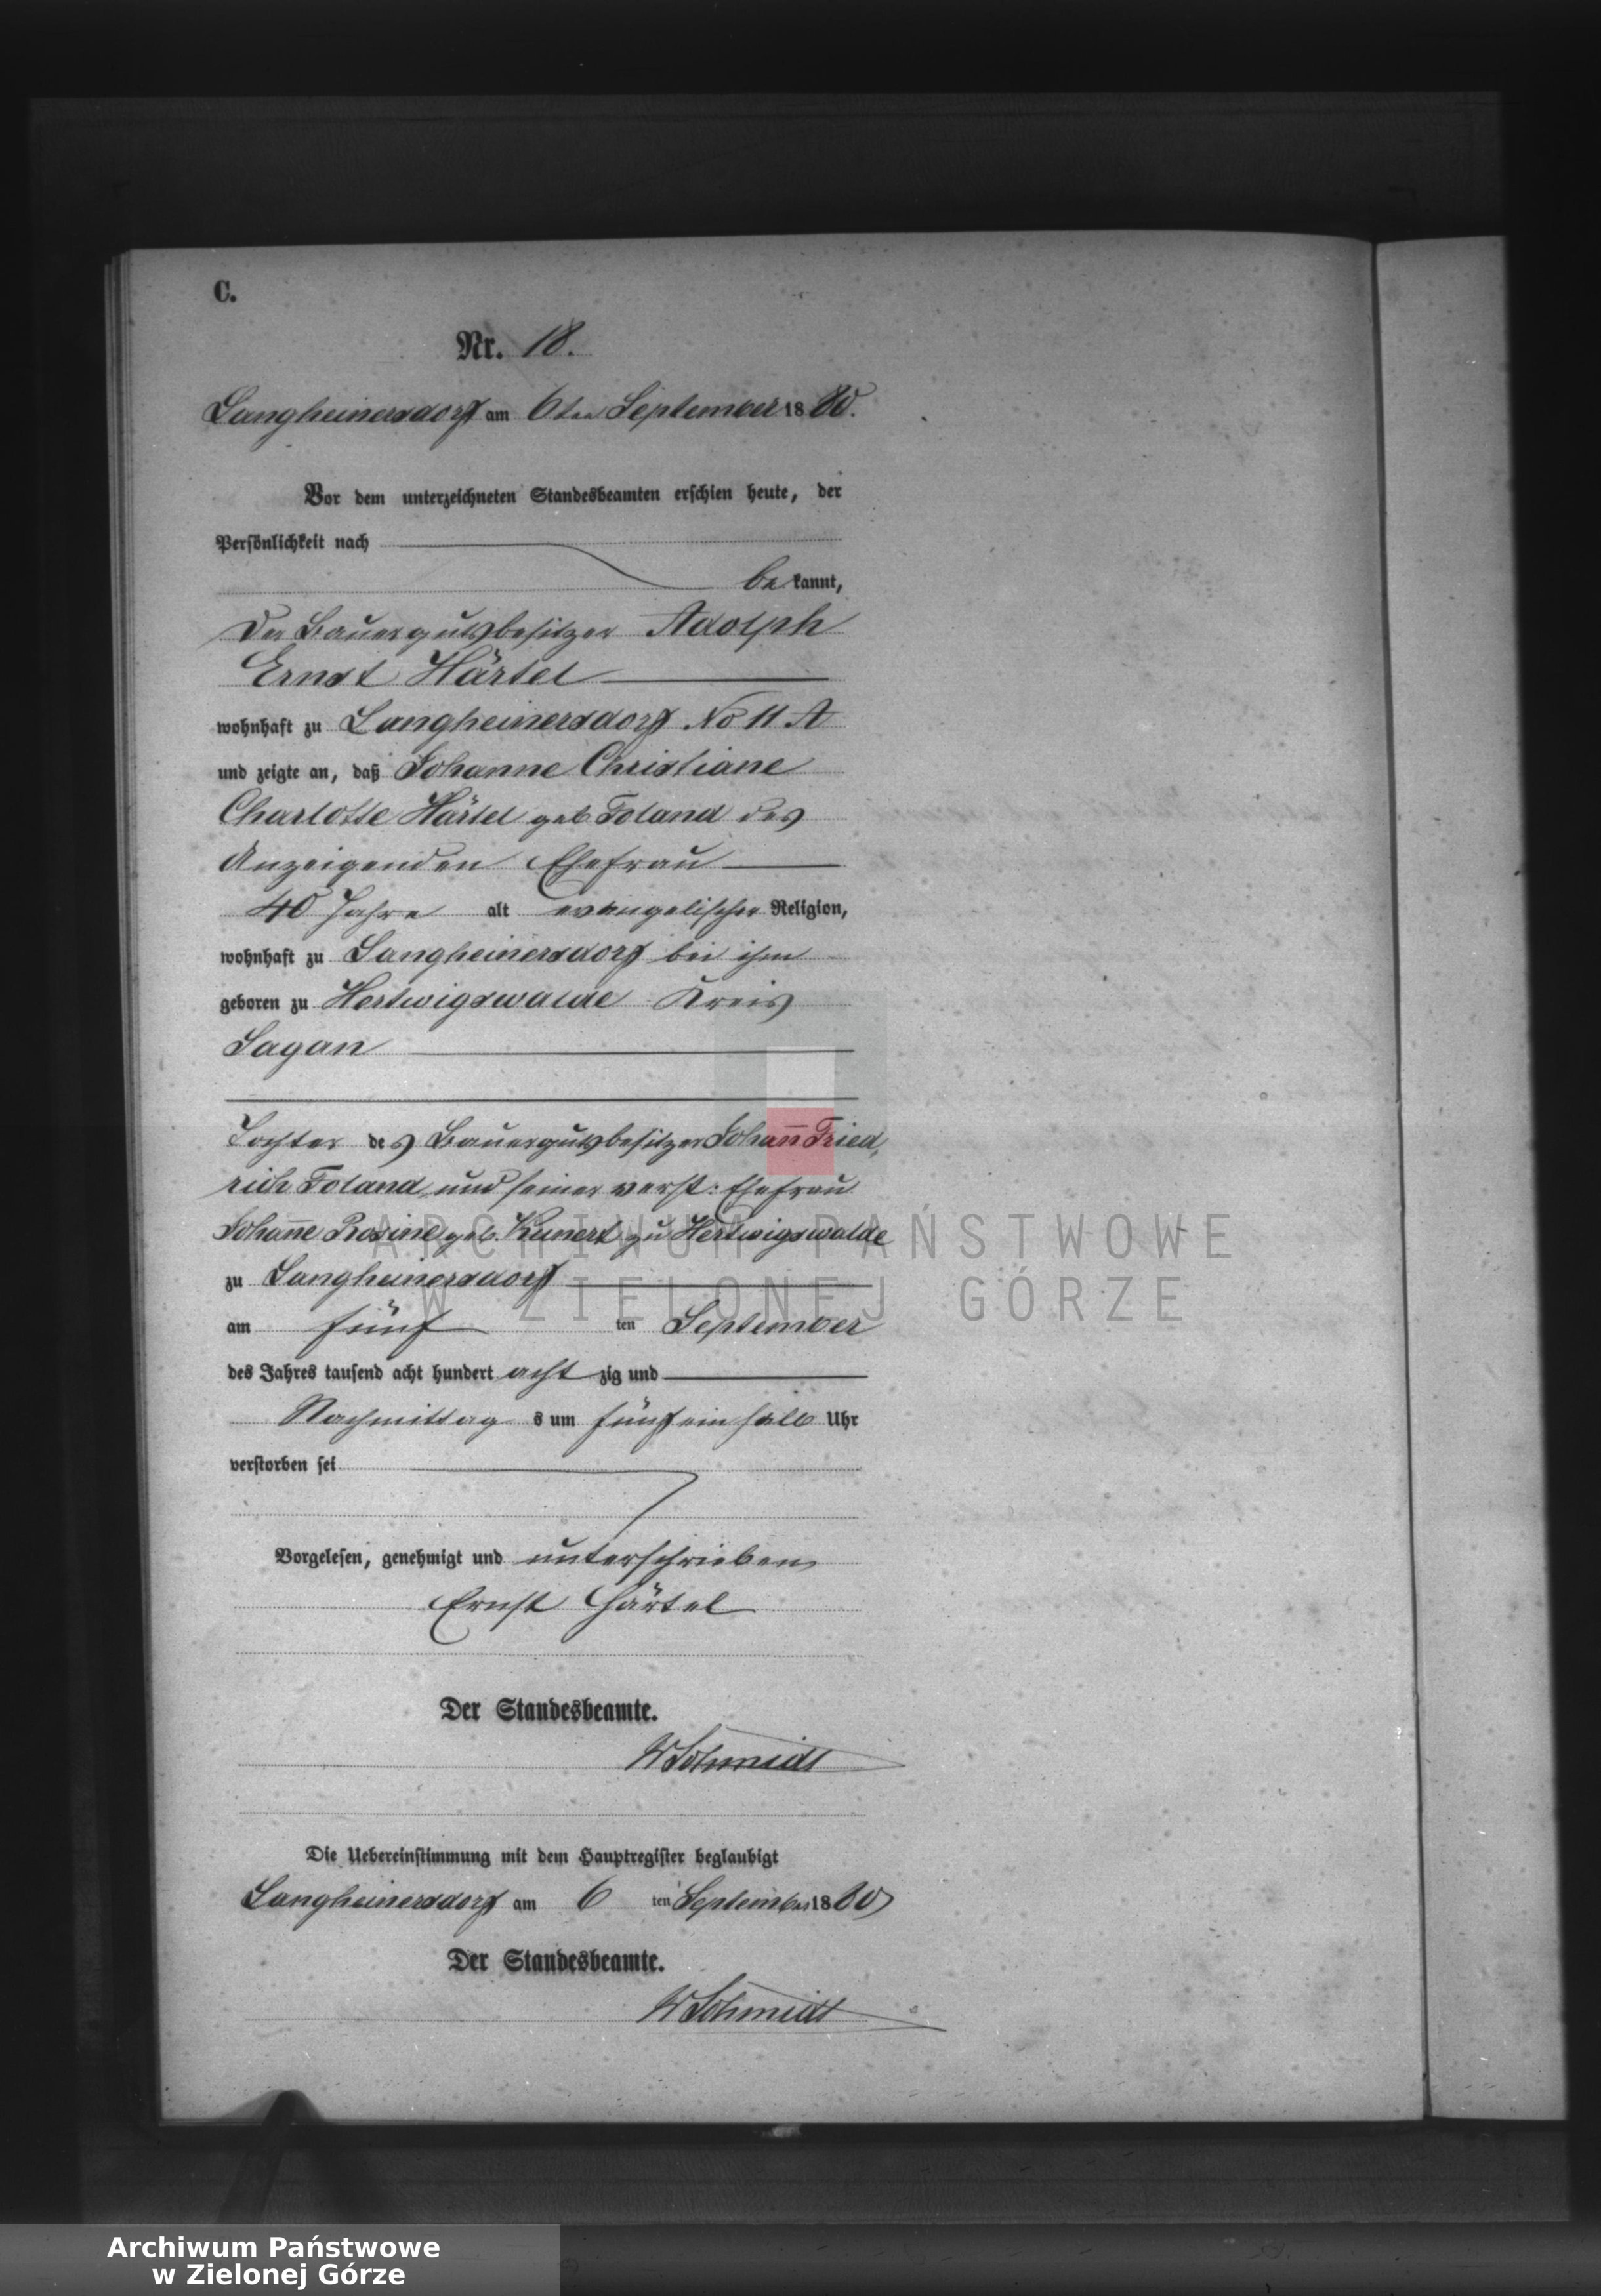 C.
Nr. 18.
Langheinersdorf am 6ten September 1880.
Vor dem unterzeichneten Standesbeamten erschien heute, der
Persönlichkeit nach
bekannt,
der Bauergutsbesitzer Adolph
Ernst Härtel
wohnhaft zu Langheinersdorf No 11 A
und zeigte an, daß Johanne Christiane
Charlotte Härtel geb Foland des
Anzeigenden Ehefrau
40 Jahre alt evangelischer Religion,
wohnhaft zu Langheinersdorf bei ihm
geboren zu Hertwigswalde Kreis
Sagan
Tochter des Bauergutsbesitzer Johan̄ Fried,
rich Foland und seiner verst: Ehefrau
Johan̄e Rosine geb. Kunert zu Hertwigswalde
zu Langheinersdorf
am fünf ten September
des Jahres tausend acht hundert acht zig und
Nachmittag s um fünf ein halb Uhr
verstorben sei
Vorgelesen, genehmigt und unterschrieben
Ernst Härtel
Der Standesbeamte.
WSchmidt
Die Uebereinstimmung mit dem Hauptregister beglaubigt
Langheinersdorf am 6 ten September 1880
Der Standesbeamte.
WSchmidt
ARCHIWUM PAŃSTWOWE
W ZIELONEJ GÓRZE
Archiwum Państwowe
w Zielonej Górze